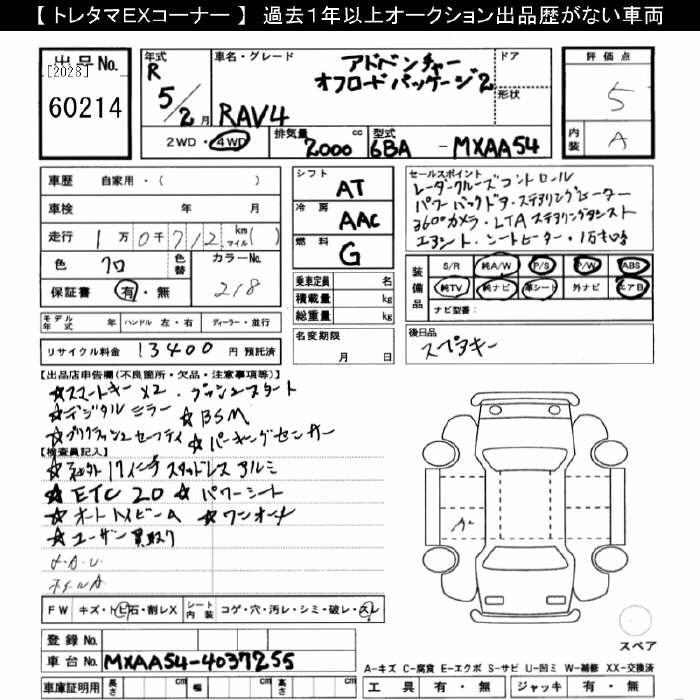 【 トレタマEXコーナー 】 過去１年以上オークション出品歴がない車両
出品No.
[2028]
60214
年式
R
5/2月
車名・グレード
アドベンチャー
オフロードパッケージ2
RAV4
ドア
形状
2WD・4WD
排気量 2000 cc
型式 6BA - MXAA54
評価点
5
内装
A
車歴 自家用・( )
車検 年 月
走行 1万0千712 km マイル( )
色 クロ
色替
カラーNo. 218
保証書 有・無
モデル年式 年 ハンドル 左・右 ディーラー・並行
リサイクル料金 13400 円 預託済
シフト AT
冷房 AAC
燃料 G
乗車定員 名
積載量 kg
総重量 kg
名変期限
月 日
セールスポイント
レーダークルーズコントロール
パワーバックドア・ステアリングヒーター
360°カメラ・LTAステアリングアシスト
エアシート・シートヒーター・1万キロ
装備品
S/R 純A/W P/S P/W ABS
純TV 純ナビ 革シート 外ナビ エアB
ナビ型番:
後日品
スペアキー
【出品店申告欄(不良箇所・欠品・注意事項等)】
☆スマートキー×2・プッシュスタート
☆デジタルミラー ☆BSM
☆プリクラッシュセーフティ ☆パーキングセンサー
【検査員記入】
17インチ スタッドレス アルミ
☆ETC 2.0 ☆パワーシート
☆オートハイビーム ☆ワンオーナー
☆ユーザー買取り
FW キズ・トビ石・割レX
シート内装 コゲ・穴・汚レ・シミ・破レ・スレ
登録No.
車台No. MXAA54-4037255
車庫証明用 長さ cm 幅 cm 高さ cm
スペア
A-キズ C-腐食 E-エクボ S-サビ U-凹ミ W-補修 XX-交換済
工具 有・無 ジャッキ 有・無